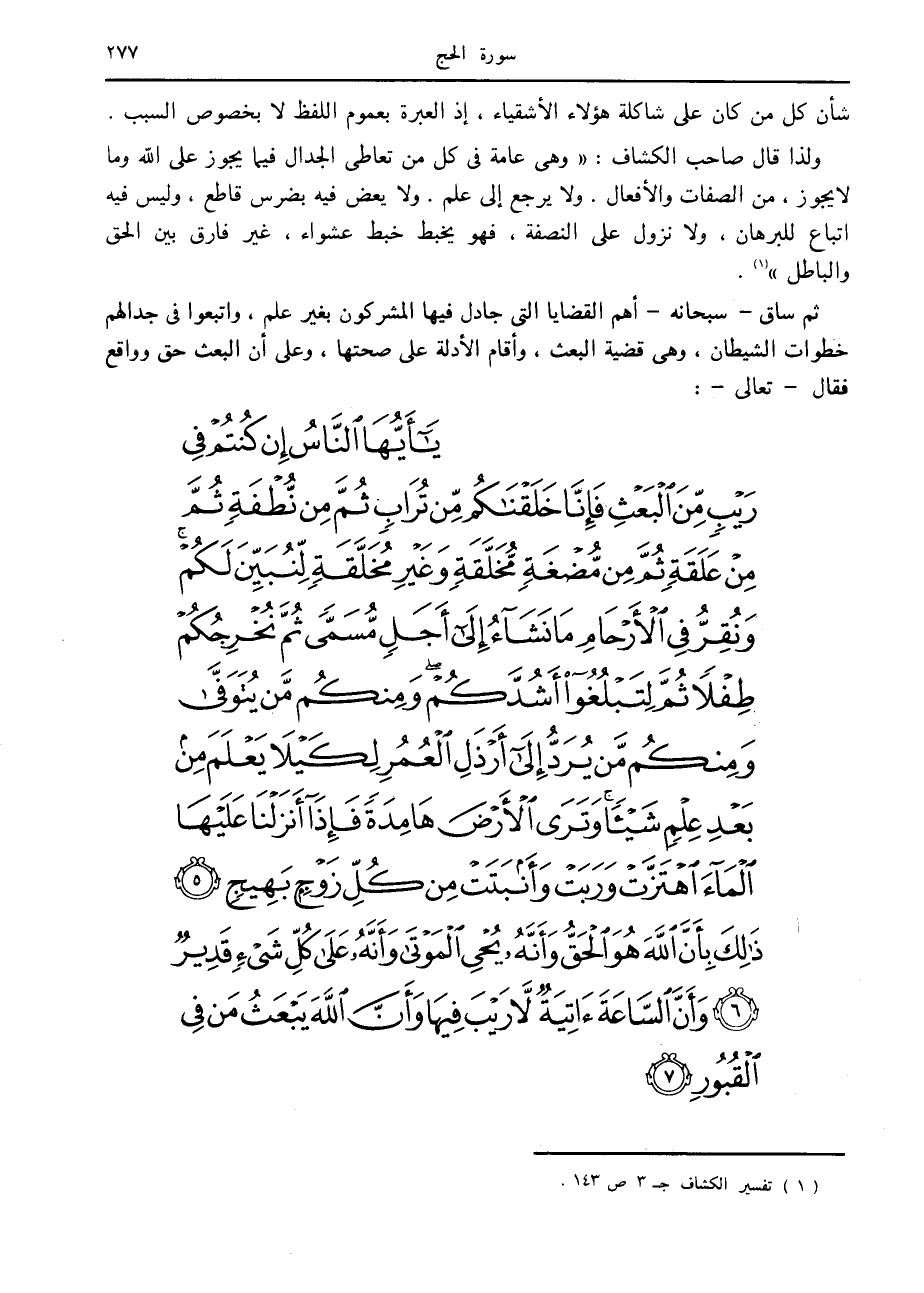 سورة الحج
٢٧٧
شأن كل من كان على شاكلة هؤلاء الأشقياء ، إذ العبرة بعموم اللفظ لا بخصوص السبب .
ولذا قال صاحب الكشاف : « وهى عامة فى كل من تعاطى الجدال فيما يجوز على الله وما
لايجوز ، من الصفات والأفعال . ولا يرجع إلى علم . ولا يعض فيه بضرس قاطع ، وليس فيه
اتباع للبرهان ، ولا نزول على النصفة ، فهو يخبط خبط عشواء ، غير فارق بين الحق
والباطل »(١) .
ثم ساق – سبحانه – أهم القضايا التى جادل فيها المشركون بغير علم ، واتبعوا فى جدالهم
خطوات الشيطان ، وهى قضية البعث ، وأقام الأدلة على صحتها ، وعلى أن البعث حق وواقع
فقال – تعالى – :
يَٰٓأَيُّهَا ٱلنَّاسُ إِن كُنتُمْ فِى
رَيْبٍ مِّنَ ٱلْبَعْثِ فَإِنَّا خَلَقْنَٰكُم مِّن تُرَابٍ ثُمَّ مِن نُّطْفَةٍ ثُمَّ
مِنْ عَلَقَةٍ ثُمَّ مِن مُّضْغَةٍ مُّخَلَّقَةٍ وَغَيْرِ مُخَلَّقَةٍ لِّنُبَيِّنَ لَكُمْ ۚ
وَنُقِرُّ فِى ٱلْأَرْحَامِ مَا نَشَآءُ إِلَىٰٓ أَجَلٍ مُّسَمًّى ثُمَّ نُخْرِجُكُمْ
طِفْلًا ثُمَّ لِتَبْلُغُوٓا۟ أَشُدَّكُمْ ۖ وَمِنكُم مَّن يُتَوَفَّىٰ
وَمِنكُم مَّن يُرَدُّ إِلَىٰٓ أَرْذَلِ ٱلْعُمُرِ لِكَيْلَا يَعْلَمَ مِنۢ
بَعْدِ عِلْمٍ شَيْـًٔا ۚ وَتَرَى ٱلْأَرْضَ هَامِدَةً فَإِذَآ أَنزَلْنَا عَلَيْهَا
ٱلْمَآءَ ٱهْتَزَّتْ وَرَبَتْ وَأَنۢبَتَتْ مِن كُلِّ زَوْجٍۭ بَهِيجٍ ٥
ذَٰلِكَ بِأَنَّ ٱللَّهَ هُوَ ٱلْحَقُّ وَأَنَّهُۥ يُحْىِ ٱلْمَوْتَىٰ وَأَنَّهُۥ عَلَىٰ كُلِّ شَىْءٍ قَدِيرٌ
٦ وَأَنَّ ٱلسَّاعَةَ ءَاتِيَةٌ لَّا رَيْبَ فِيهَا وَأَنَّ ٱللَّهَ يَبْعَثُ مَن فِى
ٱلْقُبُورِ ٧
( ١ ) تفسير الكشاف جـ ٣ ص ١٤٣ .